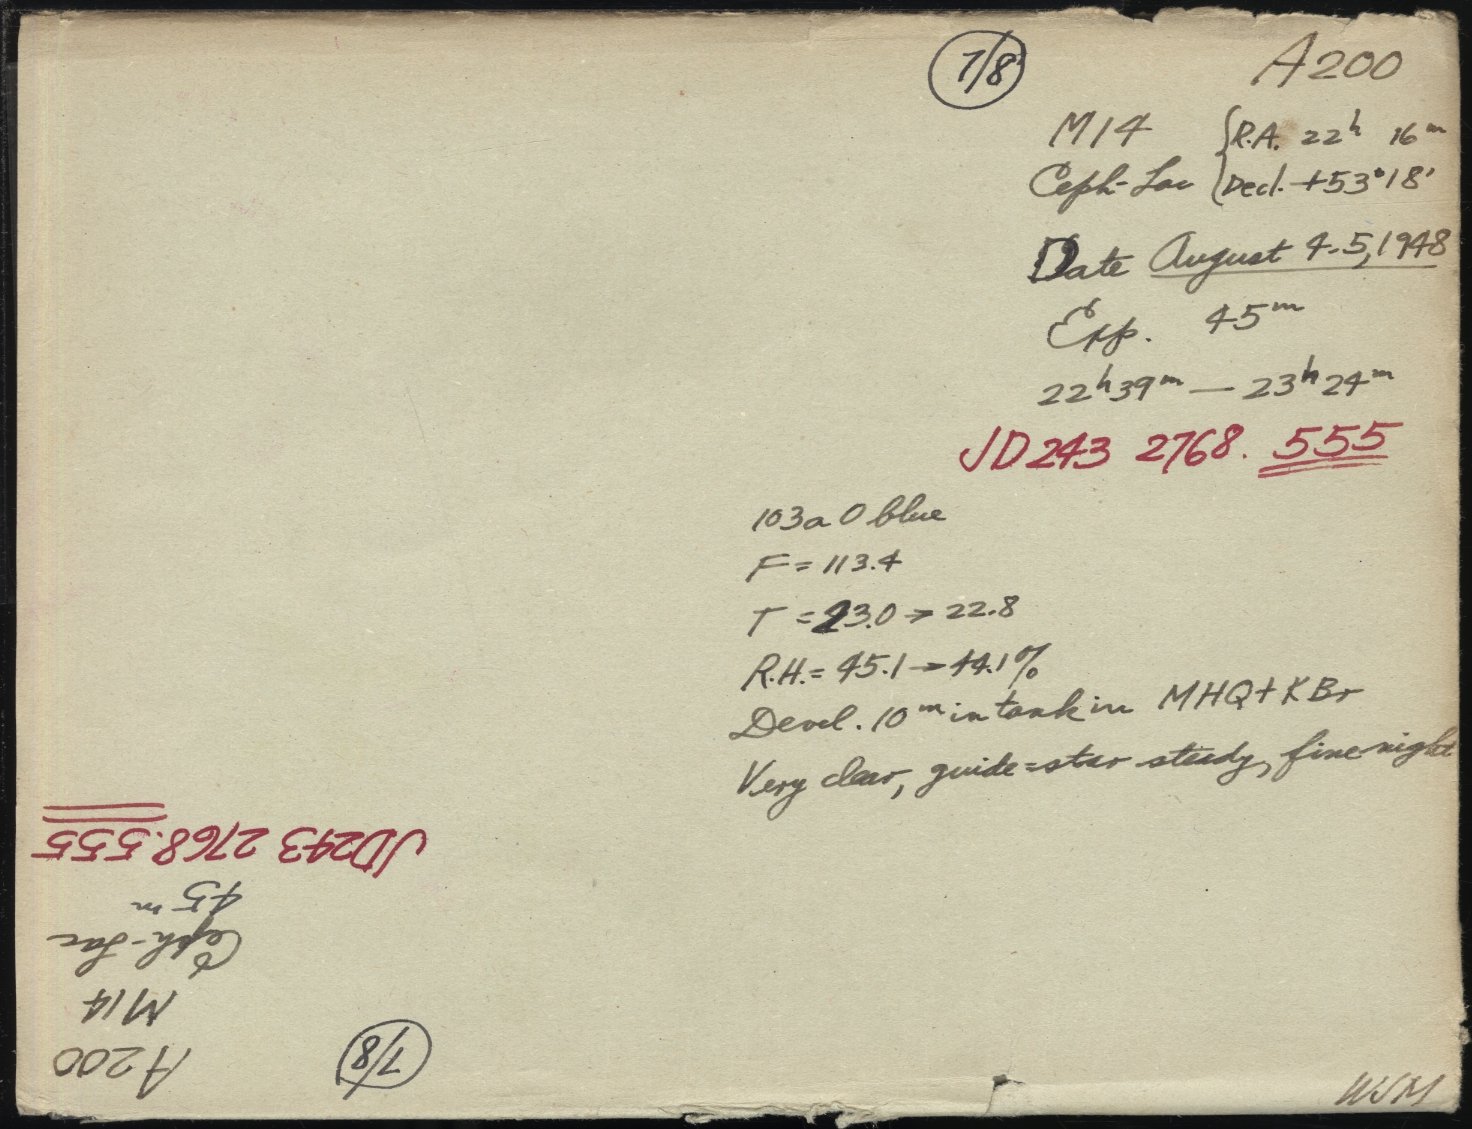 7/8 A200
M14 { R.A. 22h 16m
Ceph-Lac { Decl. +53°18'
Date August 4-5, 1948
Exp. 45m
22h39m — 23h24m
JD243 2768.555
103a O blue
F = 113.4
T = 23.0 → 22.8
R.H. = 45.1 → 44.1%
Devel. 10m in tank in MHQ + KBr
Very clear, guide-star steady, fine night
WSM
7/8
A200
M14
Ceph-Lac
45m
JD243 2768.555